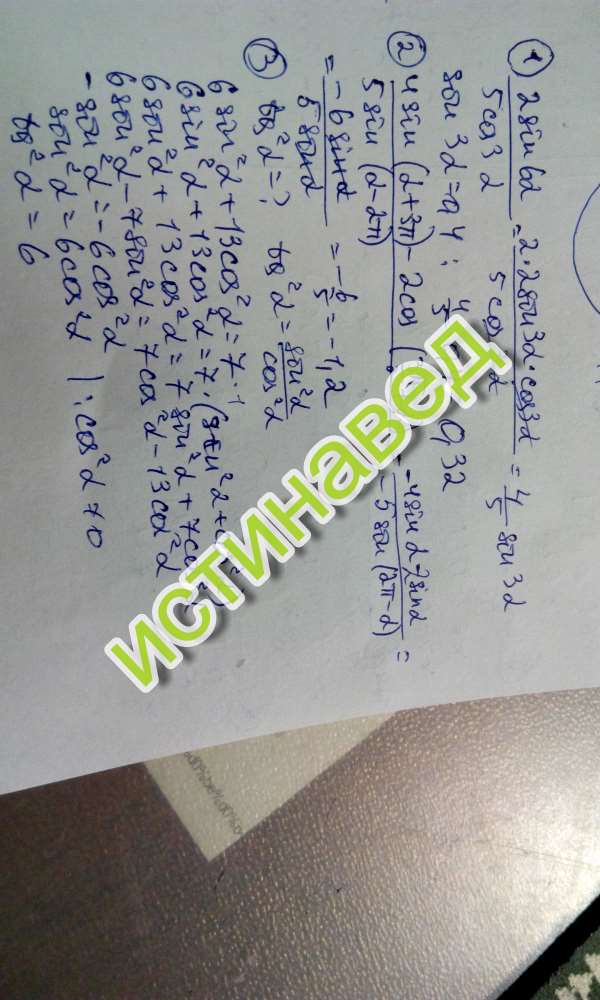 ① 2sin6α / 5cos3α = 2·2sin3α·cos3α / 5cos3α = 4/5 sin3α
sin3α=0,4; 4/5 0,32
② 4sin(α+3π)-2cos( / 5sin(α-2π) -4sinα-2sinα / -5sin(2π-α) =
= -6sinα / 5sinα = -6/5 = -1,2
③ tg²α=? tg²α = sin²α / cos²α
6sin²α+13cos²α=7·1
6sin²α+13cos²α=7·(sin²α+
6sin²α+13cos²α=7sin²α+7cos²α
6sin²α-7sin²α=7cos²α-13cos²α
-sin²α=-6cos²α
sin²α=6cos²α |:cos²α≠0
tg²α=6
истинавед